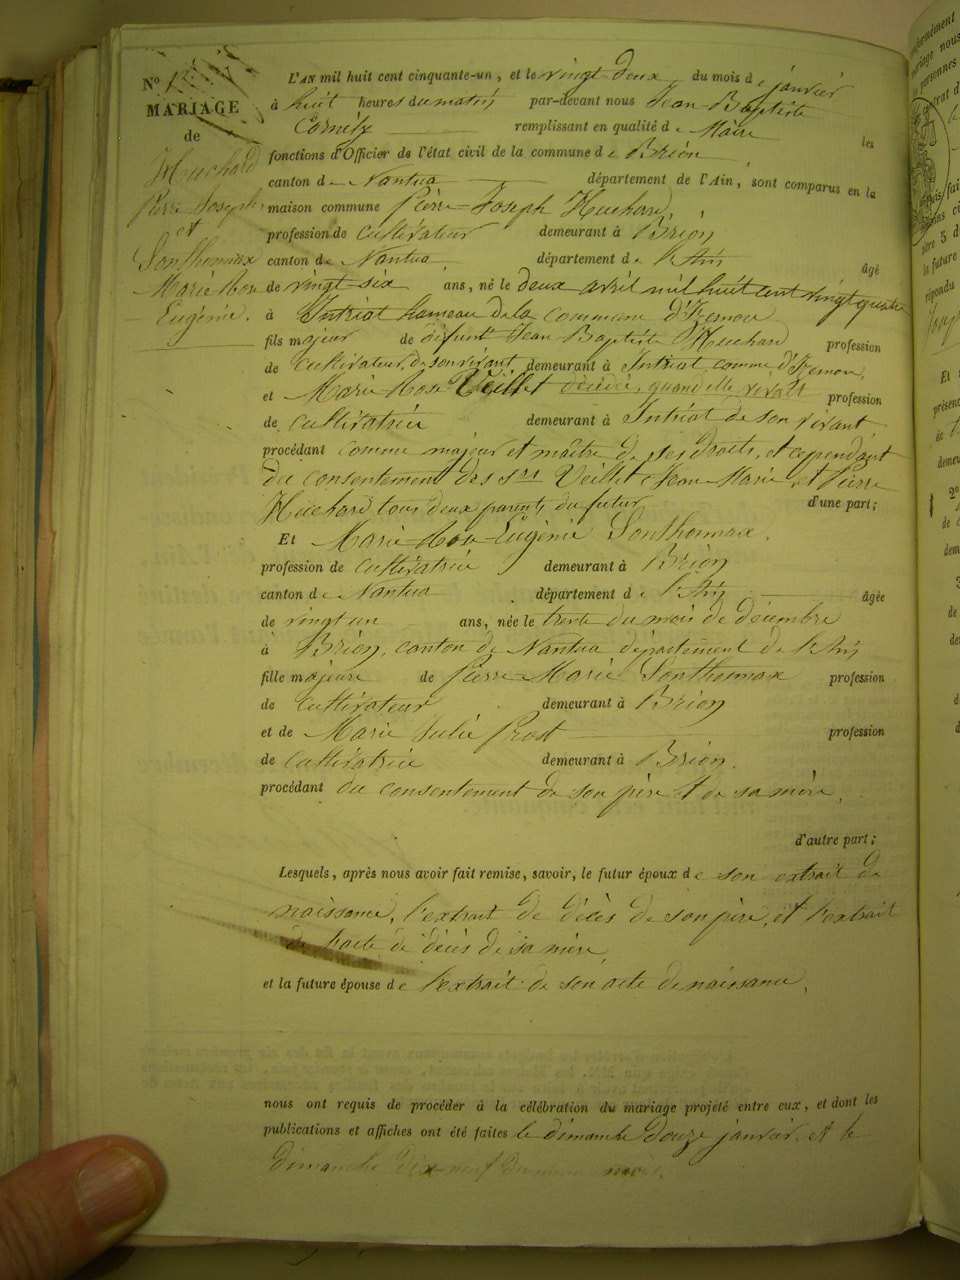 N° 1
MARIAGE
de
Huchard
Pierre Joseph
et
Sonthonnax
Marie Rose
Eugénie.
L'AN mil huit cent cinquante-un, et le vingt-deux du mois de janvier
à huit heures du matin par-devant nous Jean-Baptiste
remplissant en qualité de Maire les
fonctions d'Officier de l'état civil de la commune de Brion
canton de Nantua département de l'Ain, sont comparus en la
maison commune Pierre-Joseph Huchard,
profession de cultivateur demeurant à Brion
canton de Nantua département de l'Ain âgé
de vingt-six ans, né le deux avril mil huit cent vingt quatre
à Intriat hameau de la commune d'Izernore
fils majeur de défunt Jean Baptiste Huchard profession
de cultivateur, de son vivant demeurant à Intriat, comme d'Izernore
et Marie-Rose Veillet décédée, quand elle vivait profession
de cultivatrice demeurant à Intriat de son vivant
procédant comme majeur et maître de ses droits, et cependant
du consentement des srs Veillet Jean-Marie et Pierre
Huchard tous deux parents du futur d'une part;
Et Marie-Rose-Eugénie Sonthonnax.
profession de cultivatrice demeurant à Brion
canton de Nantua département de l'Ain âgée
de vingt un ans, née le trente du mois de décembre
à Brion, canton de Nantua département de l'Ain
fille majeure de Pierre-Marie Sonthonnax profession
de cultivateur demeurant à Brion
et de Marie Julie Prost profession
de cultivatrice demeurant à Brion.
procédant du consentement de son père et de sa mère,
d'autre part;
Lesquels, après nous avoir fait remise, savoir, le futur époux de son extrait de
naissance, l'extrait de décès de son père, et l'extrait
de l'acte de décès de sa mère,
et la future épouse de l'extrait de son acte de naissance,
nous ont requis de procéder à la célébration du mariage projeté entre eux, et dont les
publications et affiches ont été faites le dimanche douze janvier, et le
dimanche dix-neuf du même mois.